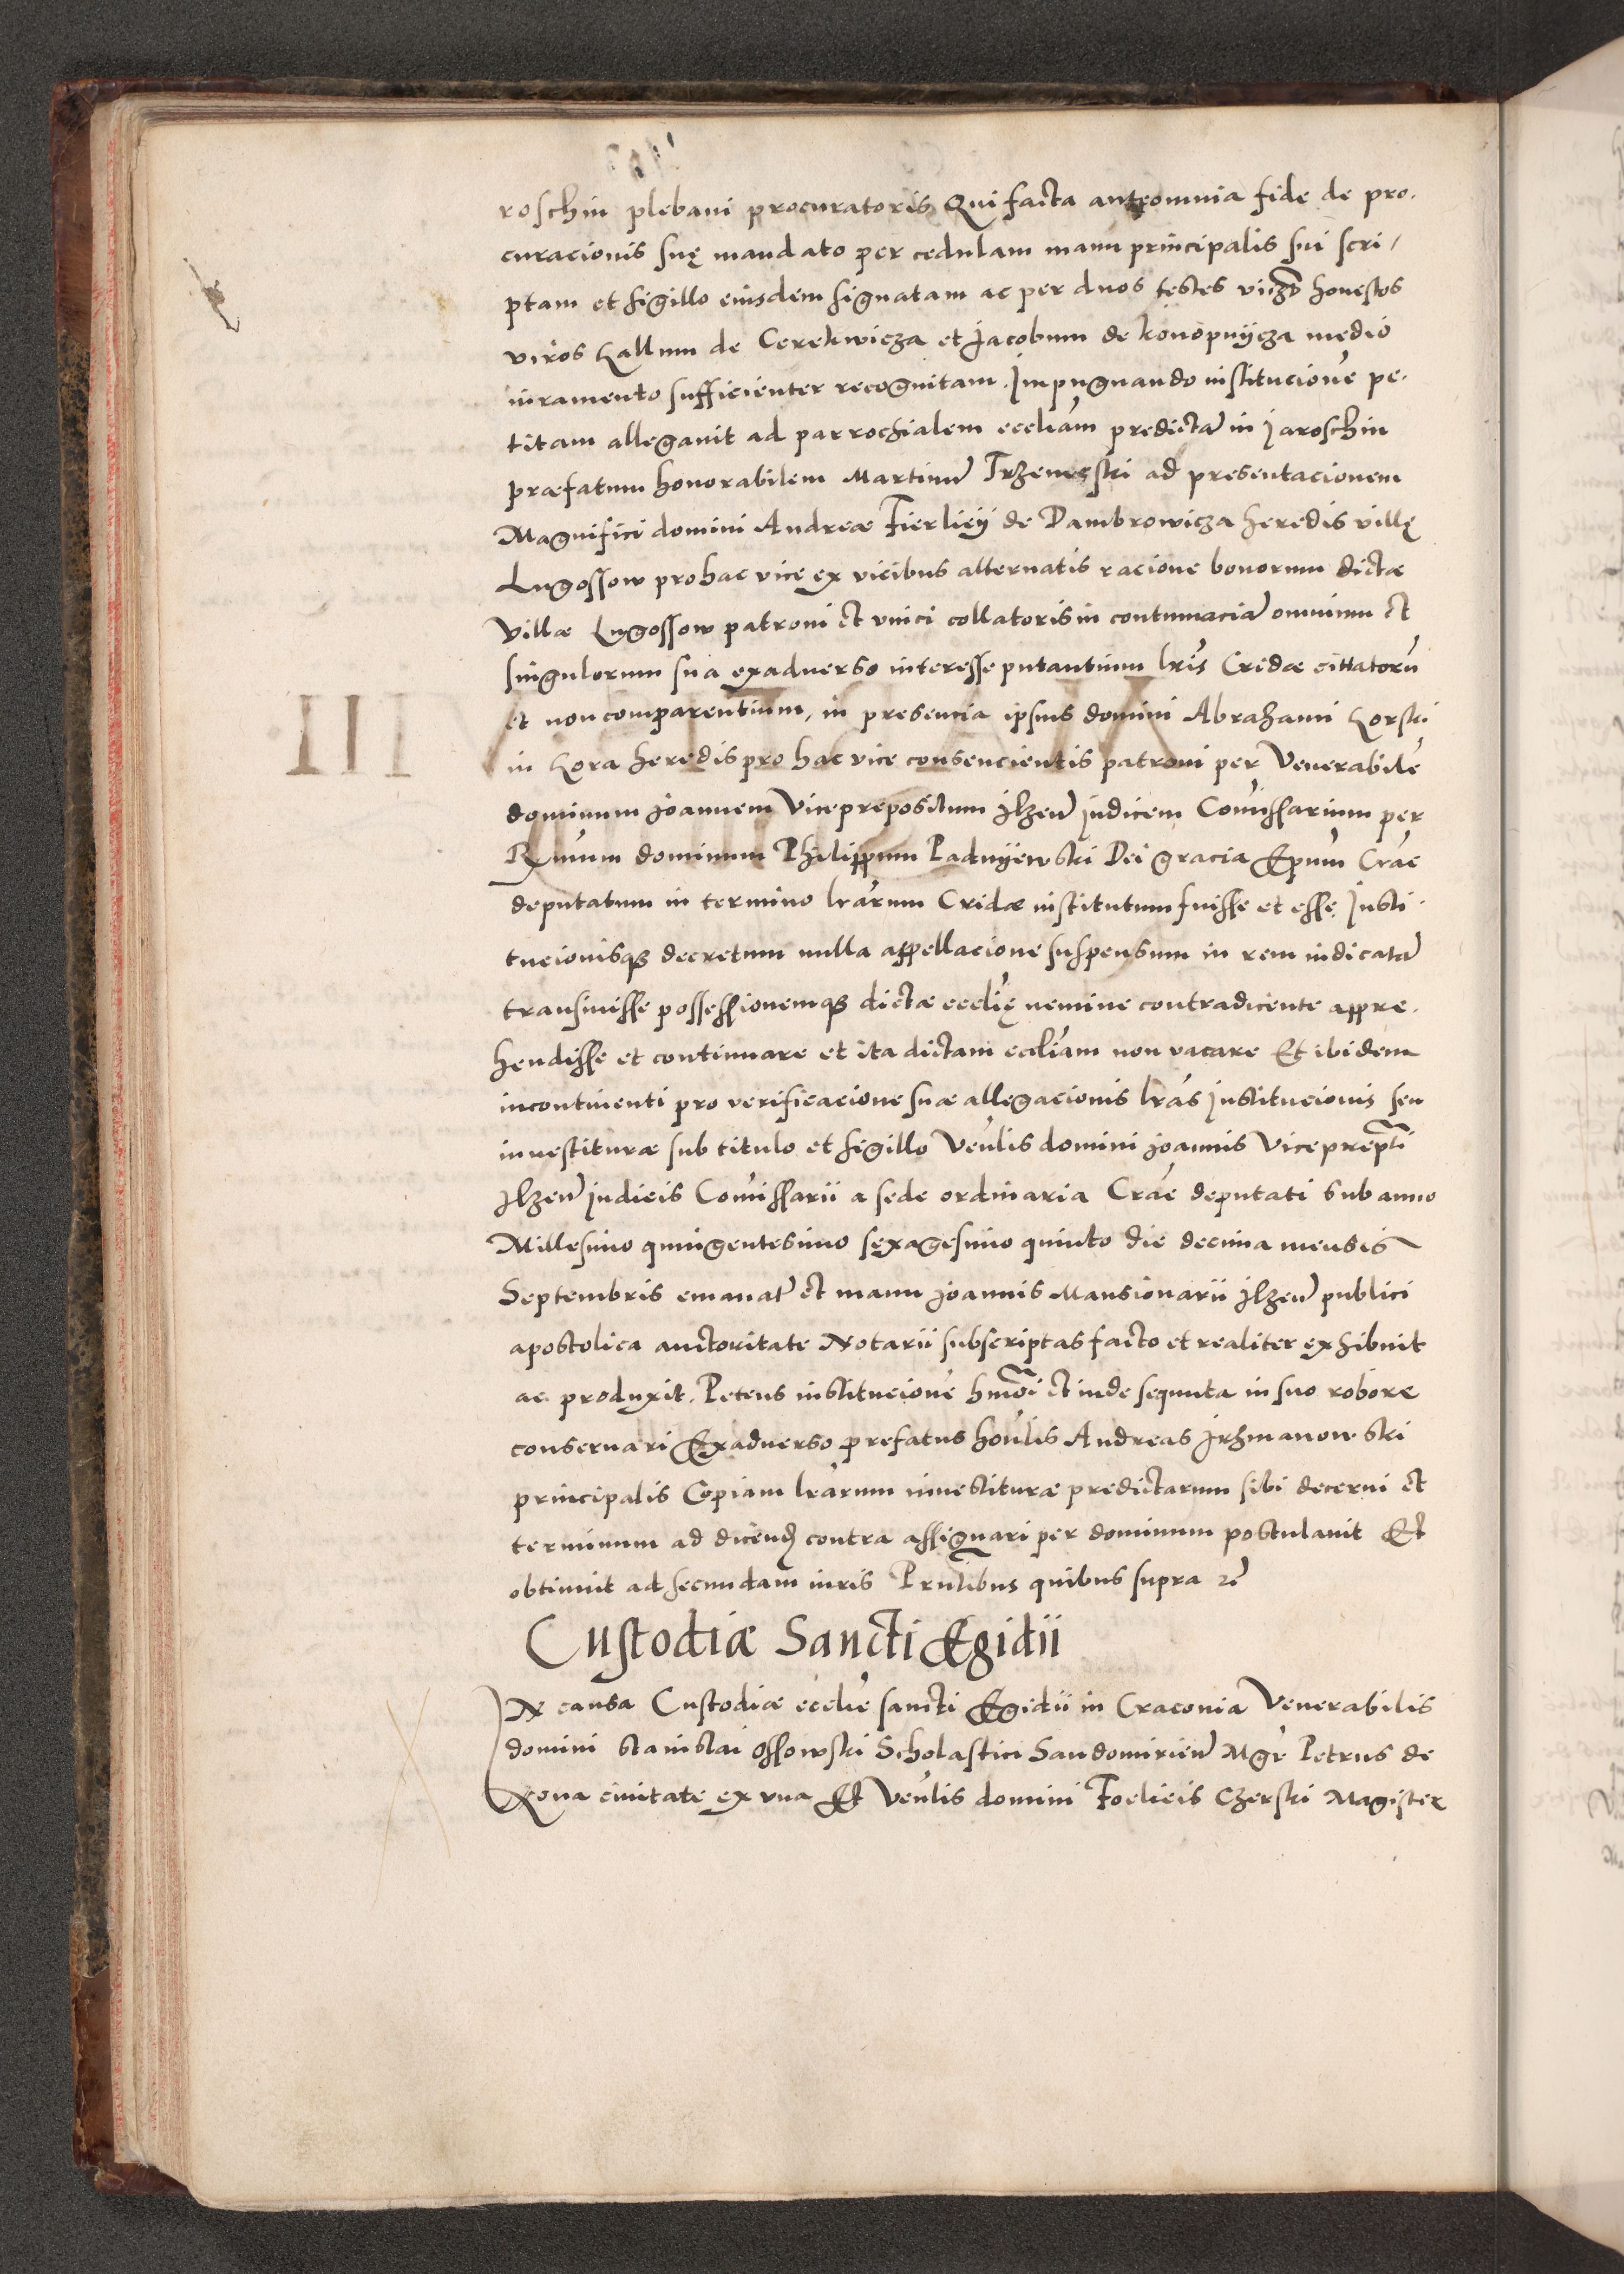 roschin plebani procuratoris Qui facta anteomnia fide de pro-
curacionis suę mandato per cedulam manu principalis sui scri/
ptam et sigillo eiusdem signatam ac per duos testes vicz honestos
viros Gallum de Cerekwicza et Jacobum de konopnycza medio
iuramento sufficienter recognitam. Impugnando institucionē pe-
titam allegavit ad parrochialem eccliam predictā in Jaroschin
præfatum honorabilem Martinū Trzemeski ad presentacionem
Magnifici domini Andreæ Fierlieÿ de Dambrowicza heredis villę
Lugossow pro hac vice ex vicibus alternatis racione bonorum dictæ
villæ Lugossow patroni et vnici collatoris in contumaciā omnium et
singulorum sua exaduerso interesse putantium lris Cridæ cittatorū
et non comparentium, in presencia ipsius domini Abrahami Gorski
in Gora heredis pro hac vice consencientis patroni per Venerabilē
dominum Joannem Viceprepositum Ilzeñ Judicem Comissarium per
Rmum dominum Philippum Padnyewski Dei gracia Epum Crac
deputatum in termino lrarum Cridæ institutum fuisse et esse Insti-
tucionisqz decretum nulla appellacione suspensum in rem iudicatā
transiuisse possessionemqz dictæ ecclię nemine contradicente appre-
hendisse et continuare et ita dictam eccliam non vacare Et ibidem
incontinenti pro verificacione suæ allegacionis lras Institucionis seu
inuestituræ sub titulo et sigillo Venlis domini Joannis Vicepreptī
Ilzeñ Judicis Comissarii a sede ordinaria Crac deputati sub anno
Millesimo quingentesimo sexagesimo quinto die decima mensis
Septembris emanat̄ et manu Joannis Mansionarii Ilzeñ publici
apostolica auctoritate Notarii subscriptas facto et realiter exhibuit
ac produxit. Petens institucionē hmoi et inde sequuta in suo robore
conseruari Exaduerso prefatus honlis Andreas Irzmanowski
principalis Copiam lrarum inuestituræ predictarum sibi decerni et
terminum ad dicend contra assignari per dominum postulauit Et
obtinuit ad secundam iuris Pruntibus quibus supra rc
Custodiæ Sancti Egidii
IN causa Custodiæ ecclie sancti Egidii in Cracouia Venerabilis
domini Stanislai Ossowski Scholastici Sandomirieñ Mgr Petrus de
Noua ciuitate ex vna Et Venlis domini Foelicis Czerski Magister
III